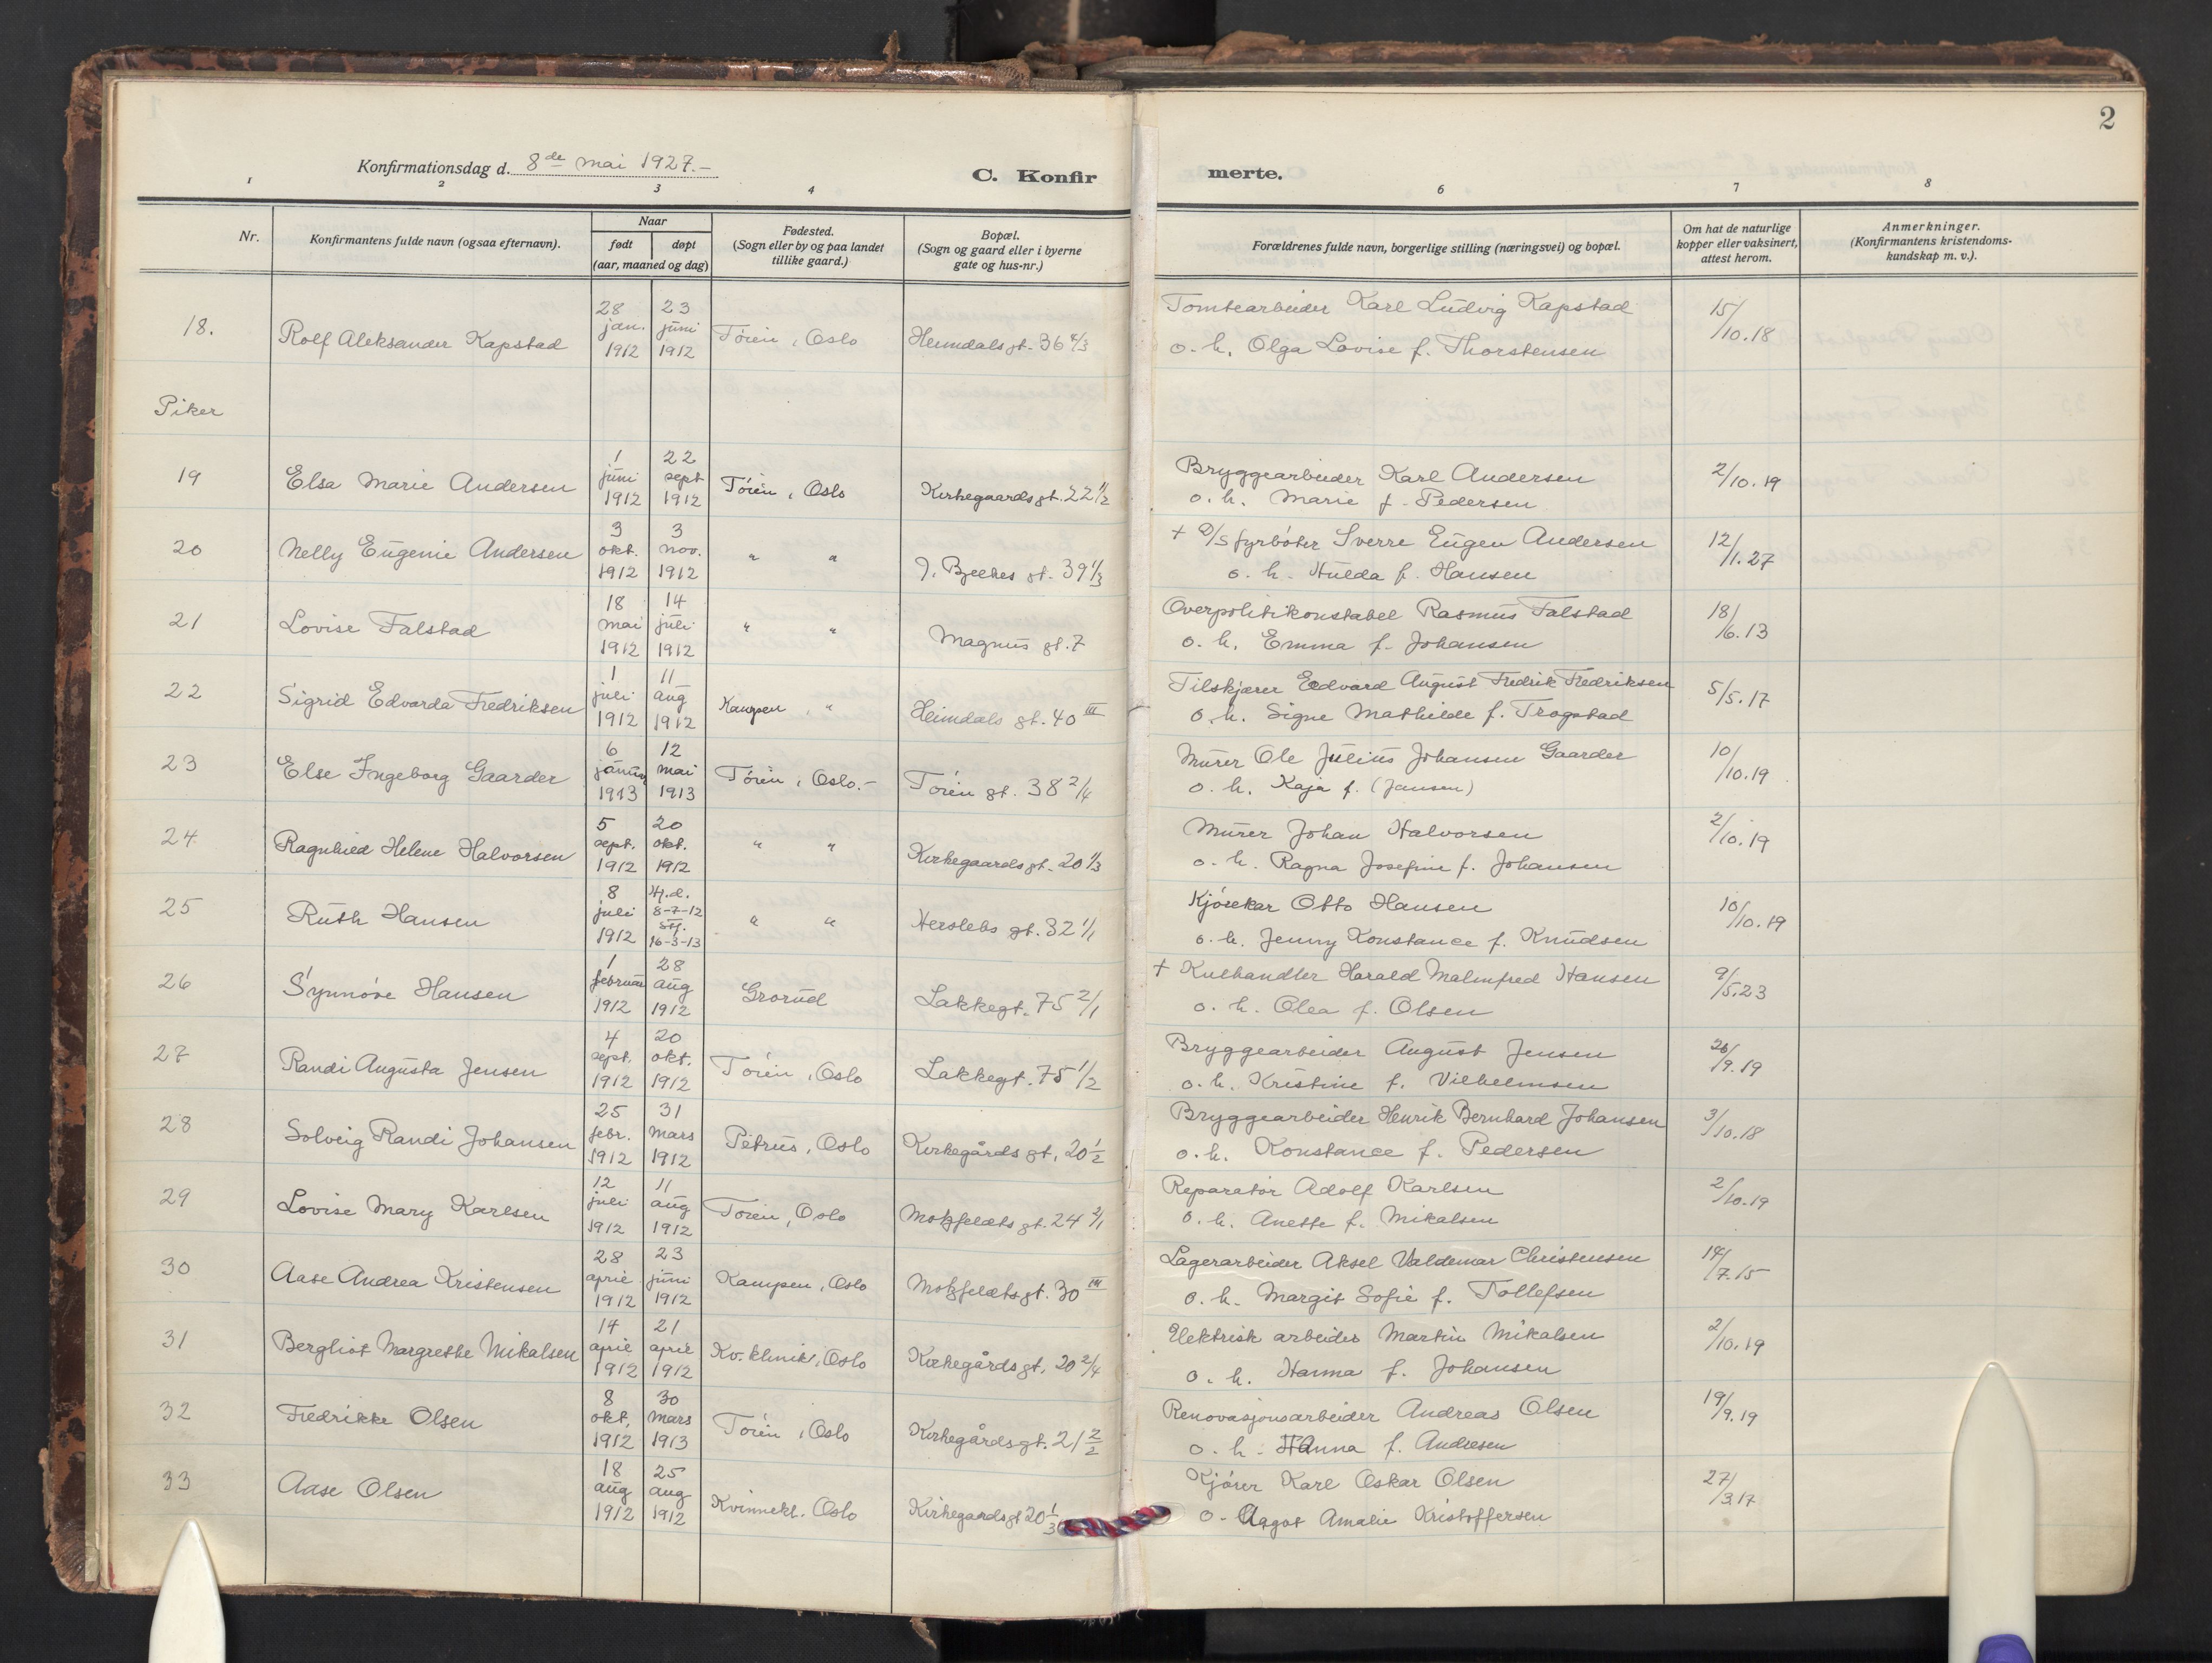 2
Konfirmationsdag d. 8de mai 1927.-
C. Konfir
merte.
1 2 3 4 6 7 8
Nr.
Konfirmantens fulde navn (ogsaa efternavn).
Naar
født
døpt
(aar, maaned og dag)
Fødested.
(Sogn eller by og paa landet
tillike gaard.)
Bopæl.
(Sogn og gaard eller i byerne
gate og hus-nr.)
Forældrenes fulde navn, borgerlige stilling (næringsvei) og bopæl.
Om hat de naturlige
kopper eller vaksinert,
attest herom.
Anmerkninger.
(Konfirmantens kristendoms-
kundskap m. v.).
18. Rolf Aleksander Kapstad
28 jan. 1912
23 juni 1912
Tøien, Oslo
Heimdals gt. 36
Tomtearbeider Karl Ludvig Kapstad
o. h. Olga Lovise f. Thorstensen
15/10.18
Piker
19 Elsa Marie Andersen
1 juni 1912
22 sept 1912
Tøien, Oslo
Kirkegaardsgt. 22 1/2
Bryggearbeider Karl Andersen
o. h. Marie f. Pedersen
2/10.19
20 Nelly Eugenie Andersen
3 okt. 1912
3 nov. 1912
" "
J. Bjelkes gt. 39 1/3
+ D/S fyrbøter Sverre Eugen Andersen
o. h. Hulda f. Hansen
12/1.27
21 Lovise Falstad
18 mai 1912
14 juli 1912
" "
Magnus gt. 7
Overpolitikonstabel Rasmus Falstad
o. h. Emma f. Johansen
18/6.13
22 Sigrid Edvarda Fredriksen
1 juli 1912
11 aug 1912
Kampen, "
Heimdals gt. 40 III
Tilskjærer Edvard August Fredrik Fredriksen
o. h. Signe Mathilde f. Trogstad
5/5.17
23 Else Ingeborg Gaarder
6 januar 1913
12 mai 1913
Tøien, Oslo.-
Tøien gt. 38 2/4
Murer Ole Julius Johansen Gaarder
o. h. Kaja f. (Jansen)
10/10.19
24 Ragnhild Helene Halvorsen
5 sept. 1912
20 okt. 1912
" "
Kirkegaardsgt. 20 1/3
Murer Johan Halvorsen
o. h. Ragna Josefine f. Johansen
2/10.19
25 Ruth Hansen
8 juli 1912
Hj.d. 8-7-12 Stf. 16-3-13
" "
Herslebs gt. 32 1/1
Kjørekar Otto Hansen
o. h. Jenny Konstance f. Knudsen
10/10.19
26 Synnøve Hansen
1 februar 1912
28 aug 1912
Grorud
Lakkegt. 75 2/1
+ Kulhandler Harald Malmfred Hansen
o. h. Olea f. Olsen
9/5.23
27 Randi Augusta Jensen
4 sept. 1912
20 okt. 1912
Tøien, Oslo
Lakkegt. 75 1/2
Bryggearbeider August Jensen
o. h. Kristine f. Vilhelmsen
26/9.19
28 Solveig Randi Johansen
25 febr. 1912
31 mars 1912
Petrus, Oslo
Kirkegårdsgt. 20 1/2
Bryggearbeider Henrik Bernhard Johansen
o. h. Konstance f. Pedersen
3/10.18
29 Lovise Mary Karlsen
12 juli 1912
11 aug 1912
Tøien, Oslo
Motzfeldts gt. 24 2/1
Reparatør Adolf Karlsen
o. h. Anette f. Mikalsen
2/10.19
30 Aase Andrea Kristensen
28 april 1912
23 juni 1912
Kampen, Oslo
Motzfeldts gt. 30 III
Lagerarbeider Aksel Valdemar Christensen
o. h. Margit Sofie f. Tollefsen
14/7.15
31 Bergliot Margrethe Mikalsen
14 april 1912
21 april 1912
Kv. klinik, Oslo
Kirkegårdsgt. 20 2/4
Elektrisk arbeider Martin Mikalsen
o. h. Hanna f. Johansen
2/10.19
32 Fredrikke Olsen
8 okt. 1912
30 mars 1913
Tøien, Oslo
Kirkegårdsgt. 21 2/2
Renovasjonsarbeider Andreas Olsen
o. h. Hanna f. Andresen
19/9.19
33 Aase Olsen
18 aug 1912
25 aug 1912
Kvinnekl. Oslo
Kirkegaardsgt 20 1/3
Kjører Karl Oskar Olsen
o. Aagot Amalie Kristoffersen
27/3.17